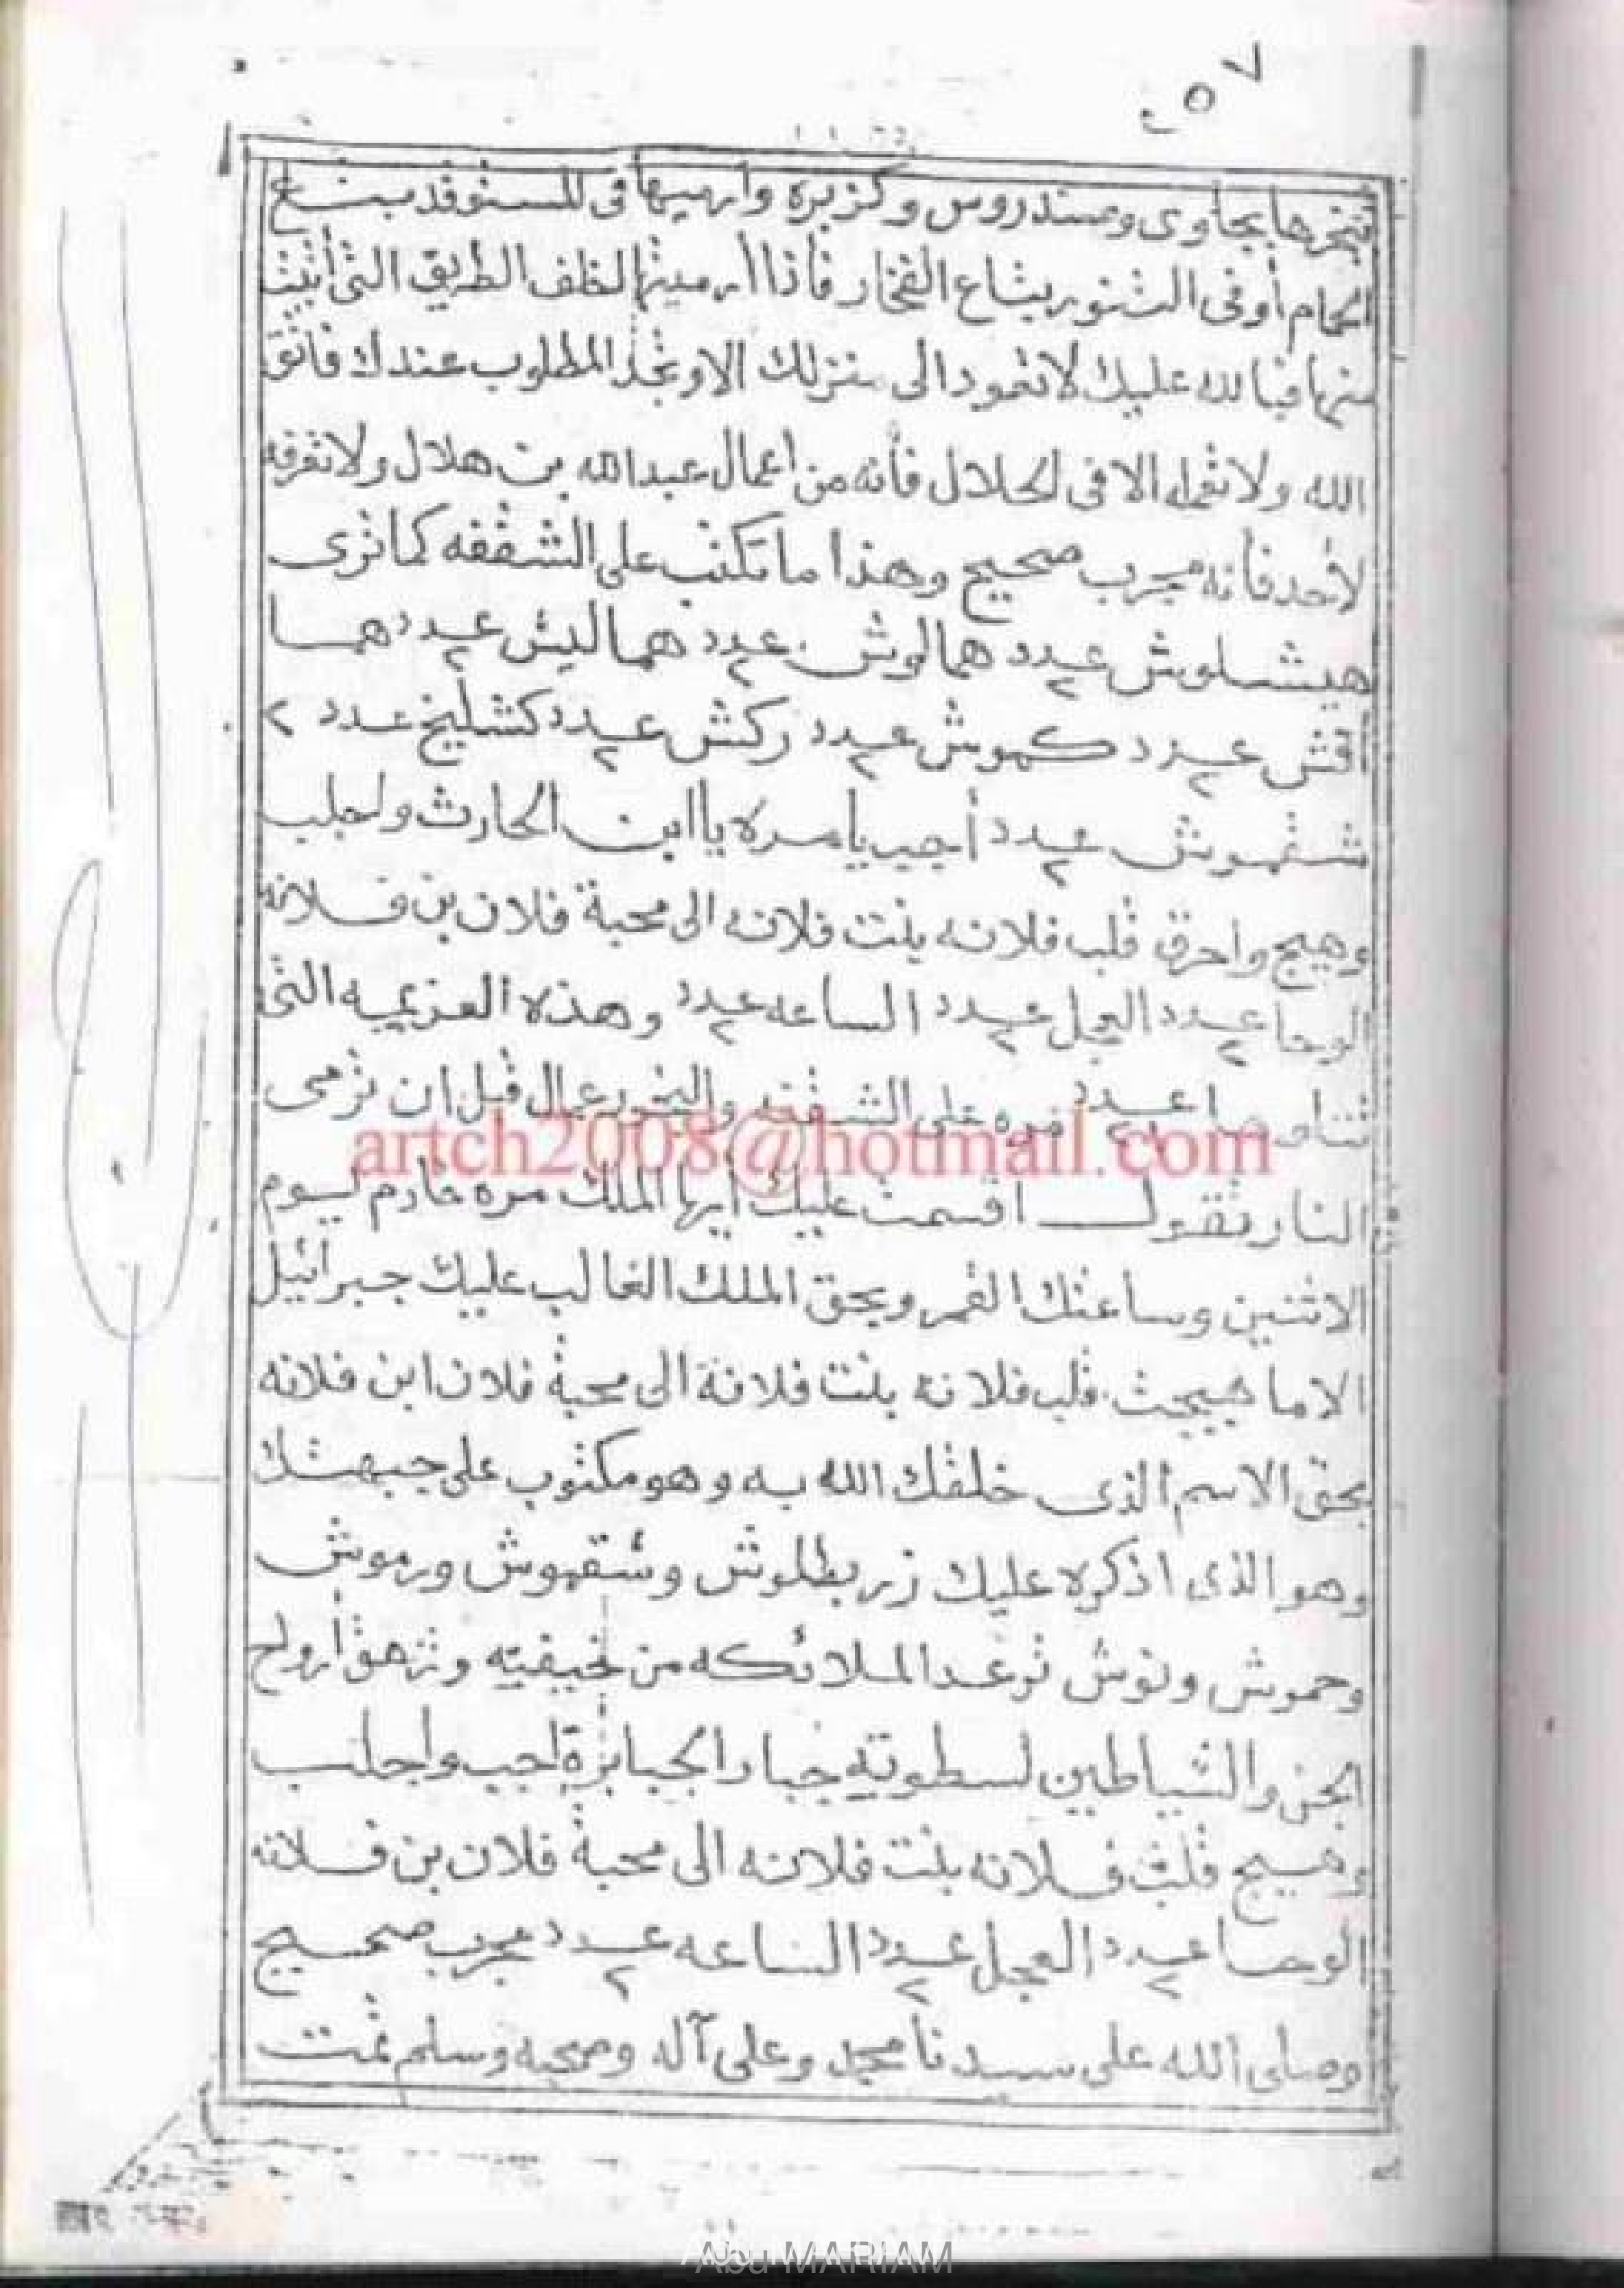 ٧
تبخرها بجاوى وسندروس وكزبره وارميها فى المستوقد بتاع
الحمام أوفى التنور بتاع الفخار فأذا ارميتها لظف الطريق التى أتيت
منها فبالله عليك لاتعود الى منزلك الاوتجد المطلوب عندك فأتق
الله ولاتعمله الافى الحلال فأنه من اعمال عبدالله بن هلال ولاتعرفه
لأحد فأنه مجرب صحيح وهذا ماتكتب على الشقفه كماترى
هيشلوش عدد ٢ همالوش عدد ٢ هماليش عدد ٢ هما
أقش عدد ٢ كموش عدد ٢ ركش عدد ٢ كشليخ عدد ٢
شقموش عدد ٢ أجيب يامره ياابن الحارث واجلب
وهيج واحرق قلب فلانه بنت فلانه الى محبة فلان بن فلانه
الوحا عدد ٢ العجل عدد ٢ الساعه عدد ٢ وهذه العزيمه التى
عدد مره على الشقفه والبخور عمال قبل ان ترمى
النار تقول اقسمت عليك أيها الملك مره خادم ليوم
الاثنين وساعتك القمر وبحق الملك الغالب عليك جبرائيل
الاما هيجت قلب فلانه بنت فلانة الى محبة فلان ابن فلانه
بحق الاسم الذى خلقك الله به وهو مكتوب على جبهتك
وهو الذى اذكره عليك زربطلوش وشقهوش ورموش
وحموش ونوش ترعد الملائكه من خيفيته وتزهق أرواح
الجن والشياطين لسطوته جبار الجبابرة اجيب واجلب
وهيج قلب فلانه بنت فلانه الى محبة فلان بن فلانه
الوحا عدد ٢ العجل عدد ٢ الساعه عدد ٢ مجرب صحيح
وصلى الله على سيدنا محمد وعلى آله وصحبه وسلم تمت
artch2008@hotmail.com
Abu MARIAM